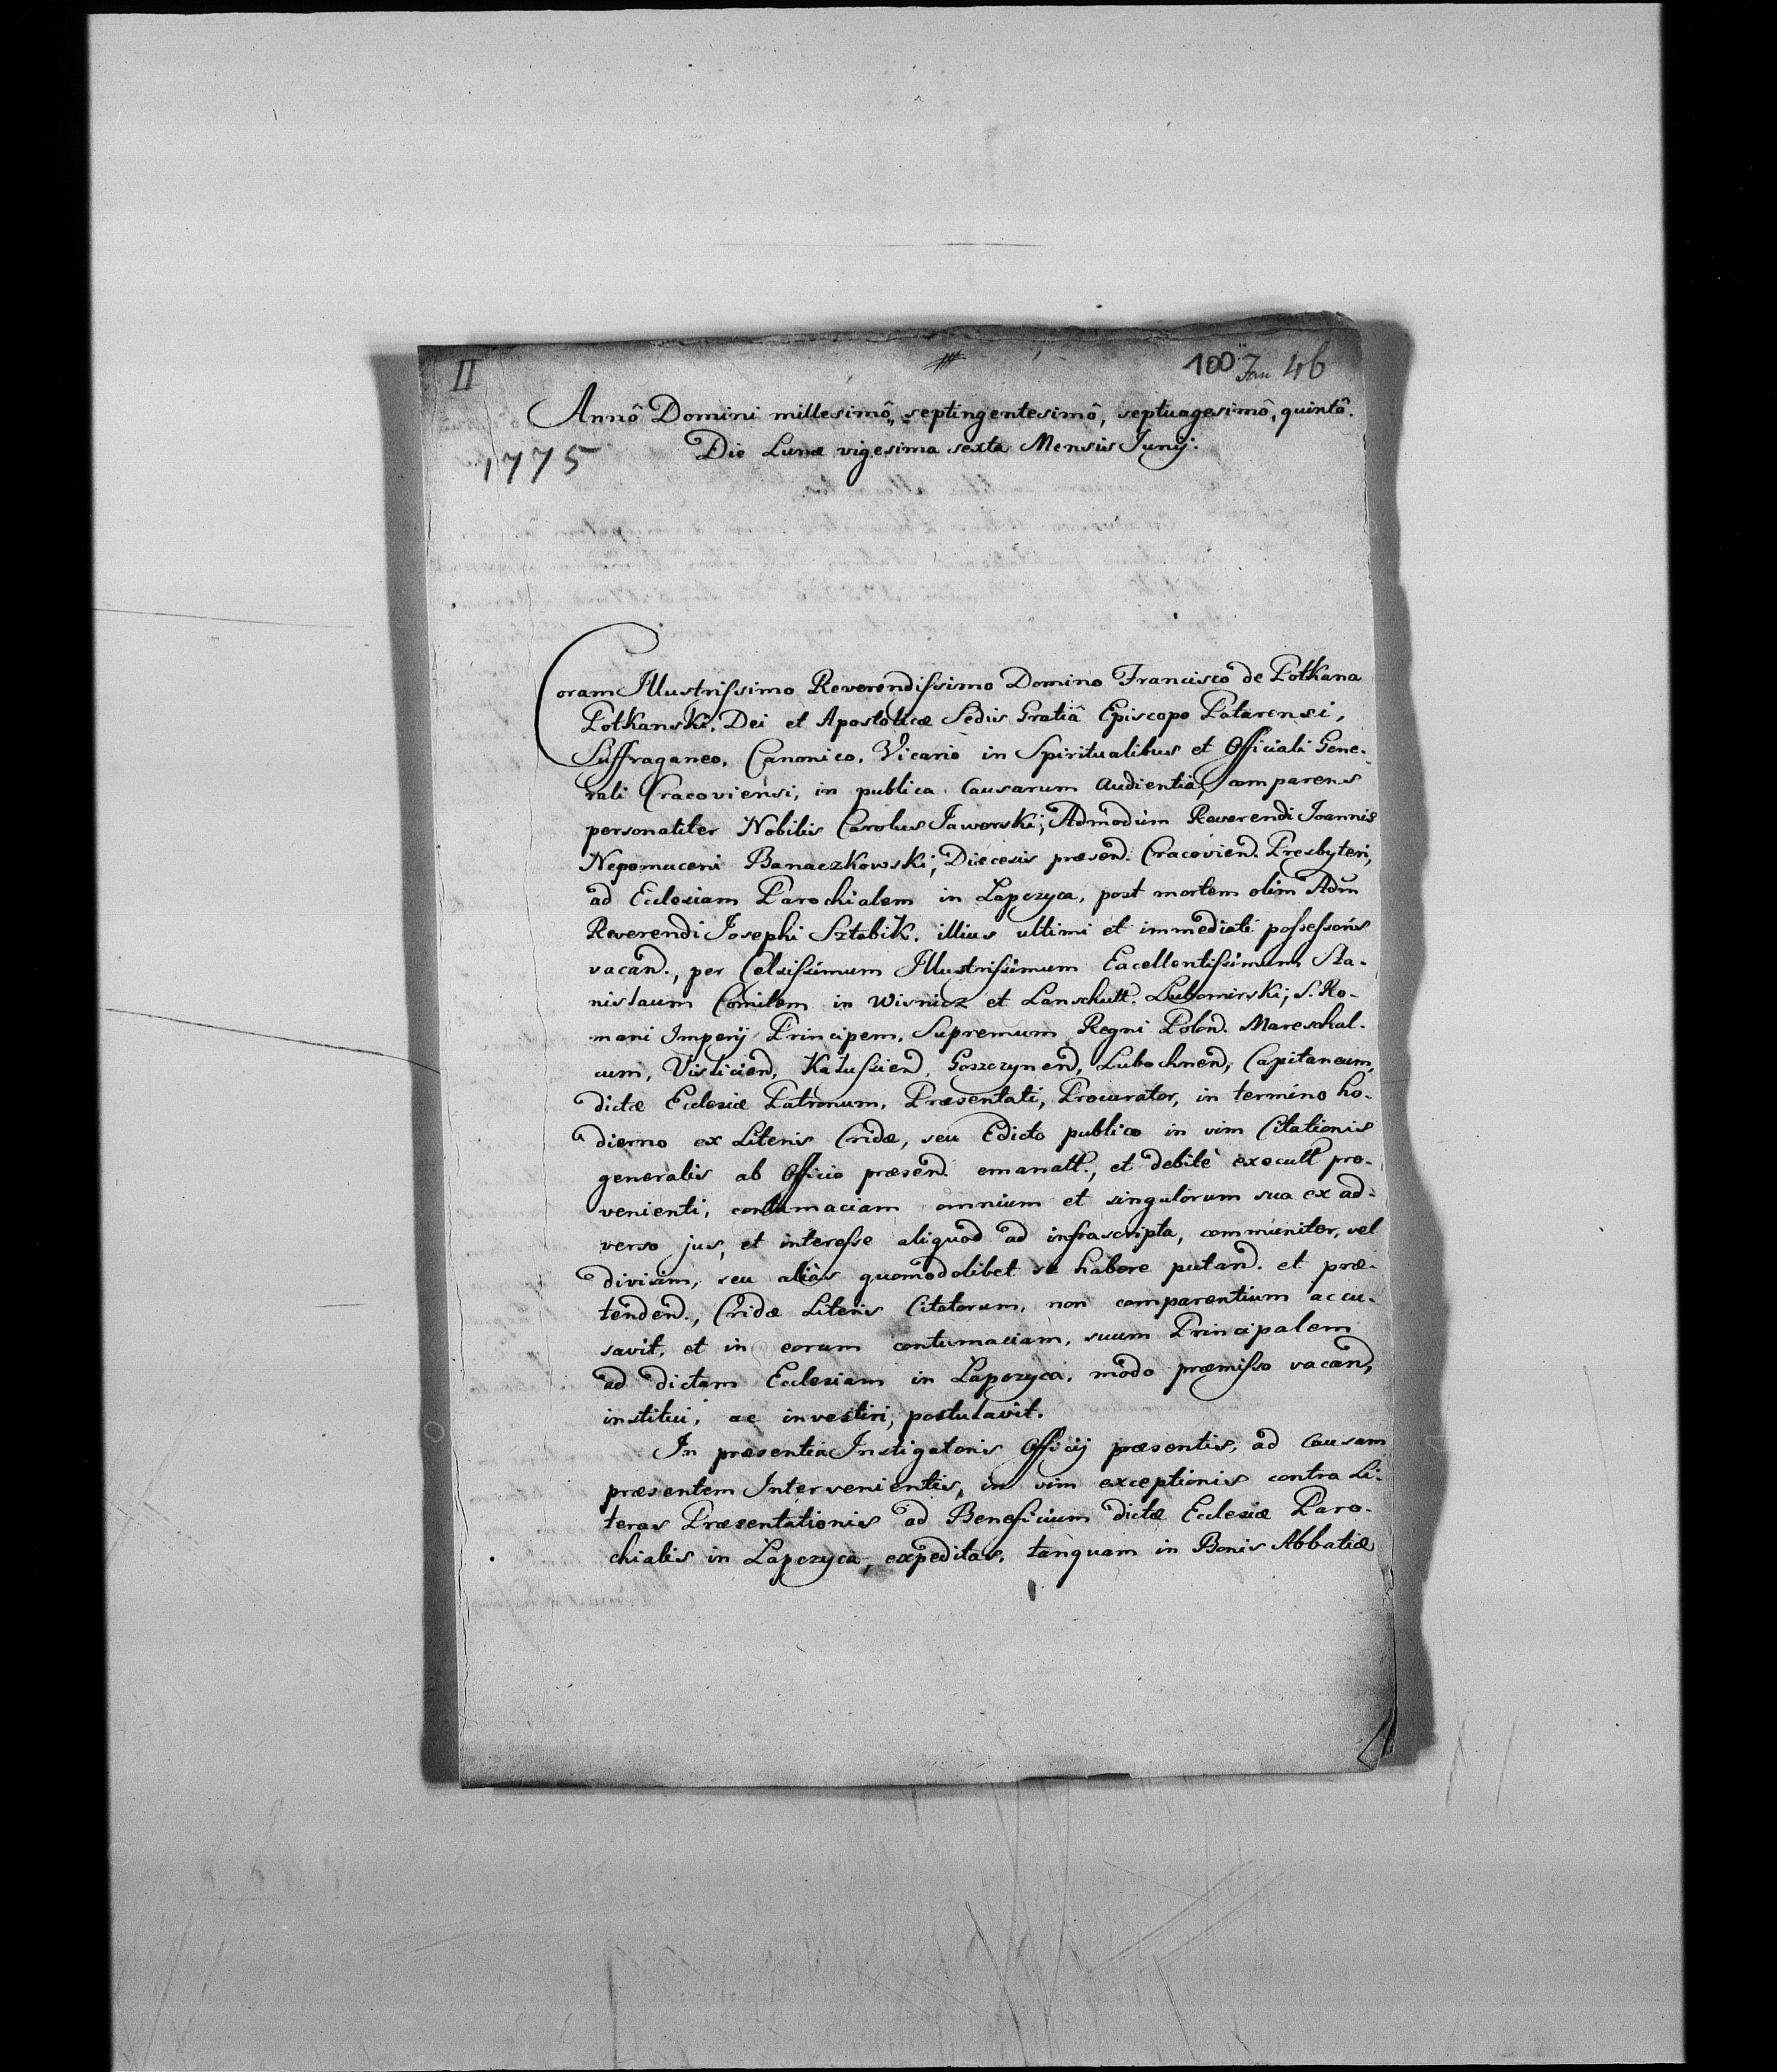 II
100 46
Annô Domini millesimô, septingentesimô, septuagesimô, quintô.
1775
Die Lunæ vigesima sexta Mensis Junij.
Coram Illustrissimo Reverendissimo Domino Francisco de Potkana
Potkanski, Dei et Apostolicæ Sedis Gratiâ Episcopo Patarensi,
Suffraganeo, Canonico, Vicario in Spiritualibus et Officiali Gene-
rali Cracoviensi, in publica Causarum Audientia, comparens
personaliter Nobilis Carolus Jaworski, Admodùm Reverendi Joannis
Nepomuceni Banaczkowski, Diæcesis præsen. Cracovien. Presbyteri,
ad Ecclesiam Parochialem in Łapczyca, post mortem olim Adm
Reverendi Josephi Sztabik, illius ultimi et immediati possessoris
vacan., per Celsissimum Illustrissimum Excellentissimum Sta-
nislaum Comitem in Wisnicz et Lanschutt. Lubomirski, S. Ro-
mani Imperij Principem, Supremum Regni Polon. Mareschal-
cum, Vislicien, Kałussien, Goszczynen, Lubochnen, Capitaneum,
dictæ Ecclesiæ Patronum, Præsentati, Procurator, in termino ho-
dierno ex Literis Cridæ, seu Edicto publico in vim Citationis
generalis ab Officio præsen. emanatt., et debitè executt pro-
venienti, contumaciam omnium et singulorum sua ex ad-
verso jus, et interesse aliquod ad infrascripta, communiter, vel
divisim, seu aliàs quomodolibet se habere putan. et præ-
tenden., Cridæ Literis Citatorum, non comparentium accu-
savit, et in eorum contumaciam, suum Principalem
ad dictam Ecclesiam in Łapczyca, modo præmisso vacan,
institui, ac investiri, postulavit.
In præsentia Instigatoris Officij præsentis, ad Causam
præsentem Intervenientis, in vim exceptionis contra Li-
teras Præsentationis ad Beneficium dictæ Ecclesiæ Paro-
chialis in Łapczyca, expeditas, tanquam in Bonis Abbatiæ